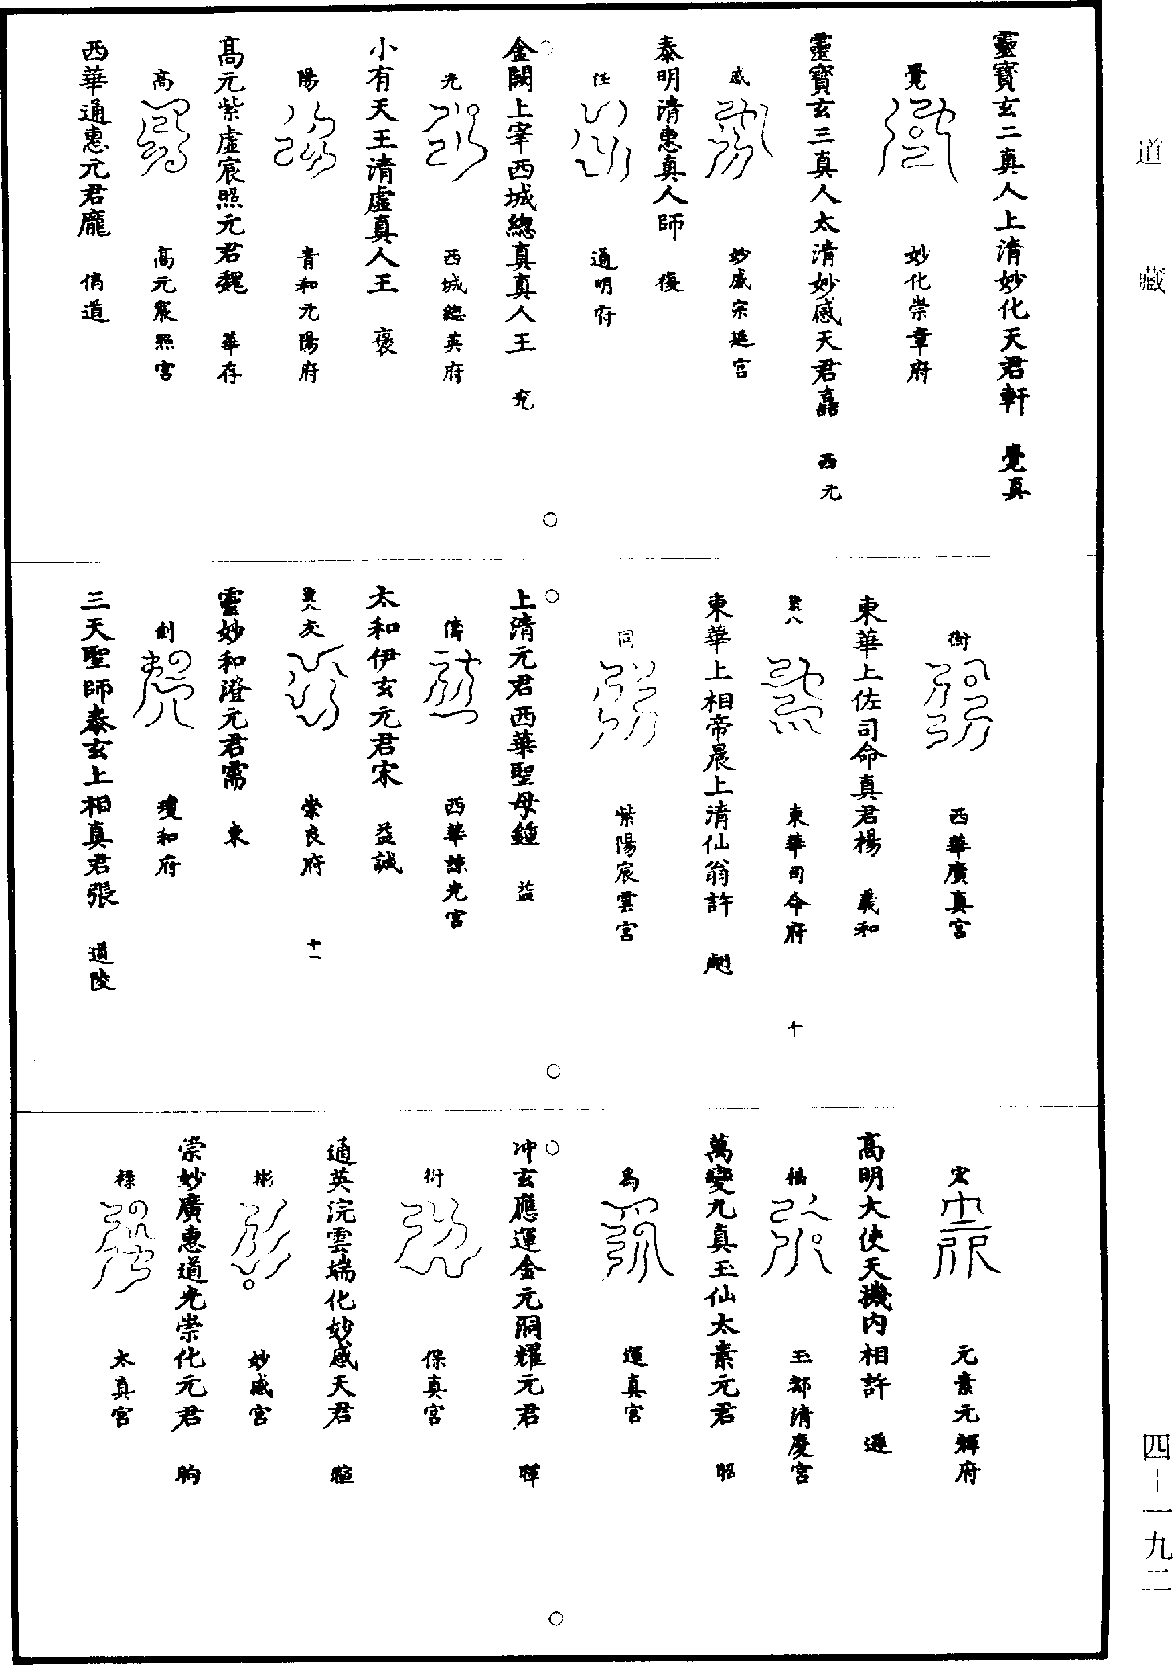 道藏
靈寳玄二真人上清妙化天君軒 覺真
覺
妙化崇章府
靈寳玄三真人太清妙感天君 西元
感
妙感宗延宫
泰明清惠真人師 復
任
通明府
金闕上宰西城總真真人王 充
光
西城總英府
小有天王清虚真人王 褒
陽
青和元陽府
髙元紫虚宸照元君魏 華存
高
高元宸照宫
西華通惠元君龐 倩道
衡
西華廣真宫
東華上佐司命真君楊 羲和
東華司命府
十
東華上相帝晨上清仙翁許 翽
同
紫陽宸雲宫
上清元君西華聖母鍾 益
儔
西華諫光宫
太和伊玄元君宋 益誠
友
崇良府
十一
雲妙和澄元君需 東
創
瓊和府
三天聖師泰玄上相真君張 道陵
宏
元素元輝府
高明大使天機内相許 遜
福
玉都清慶宫
萬變九真玉仙太素元君 昭
爲
運真宫
冲玄應運金元洞耀元君 暉
衍
保真宫
通英浣雲端化妙感天君 暄
彬
妙感宫
崇妙廣惠道光崇化元君 昫
禄
太真宫
四－一九二